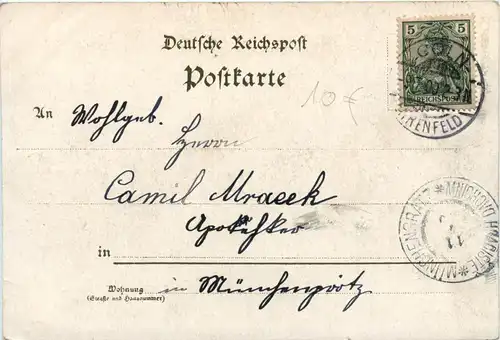 Deutsche Reichspost
Postkarte
5 5
REICHSPOST
CÖLN
EHRENFELD
10 €
An Wohlgeb.
Herrn
Camil Mracek
Apotheker
in
Wohnung
(Straße und Hausnummer)
in Münchengrätz
MNICHOVO HRADIŠTĚ * MÜNCHENGRÄTZ *
11